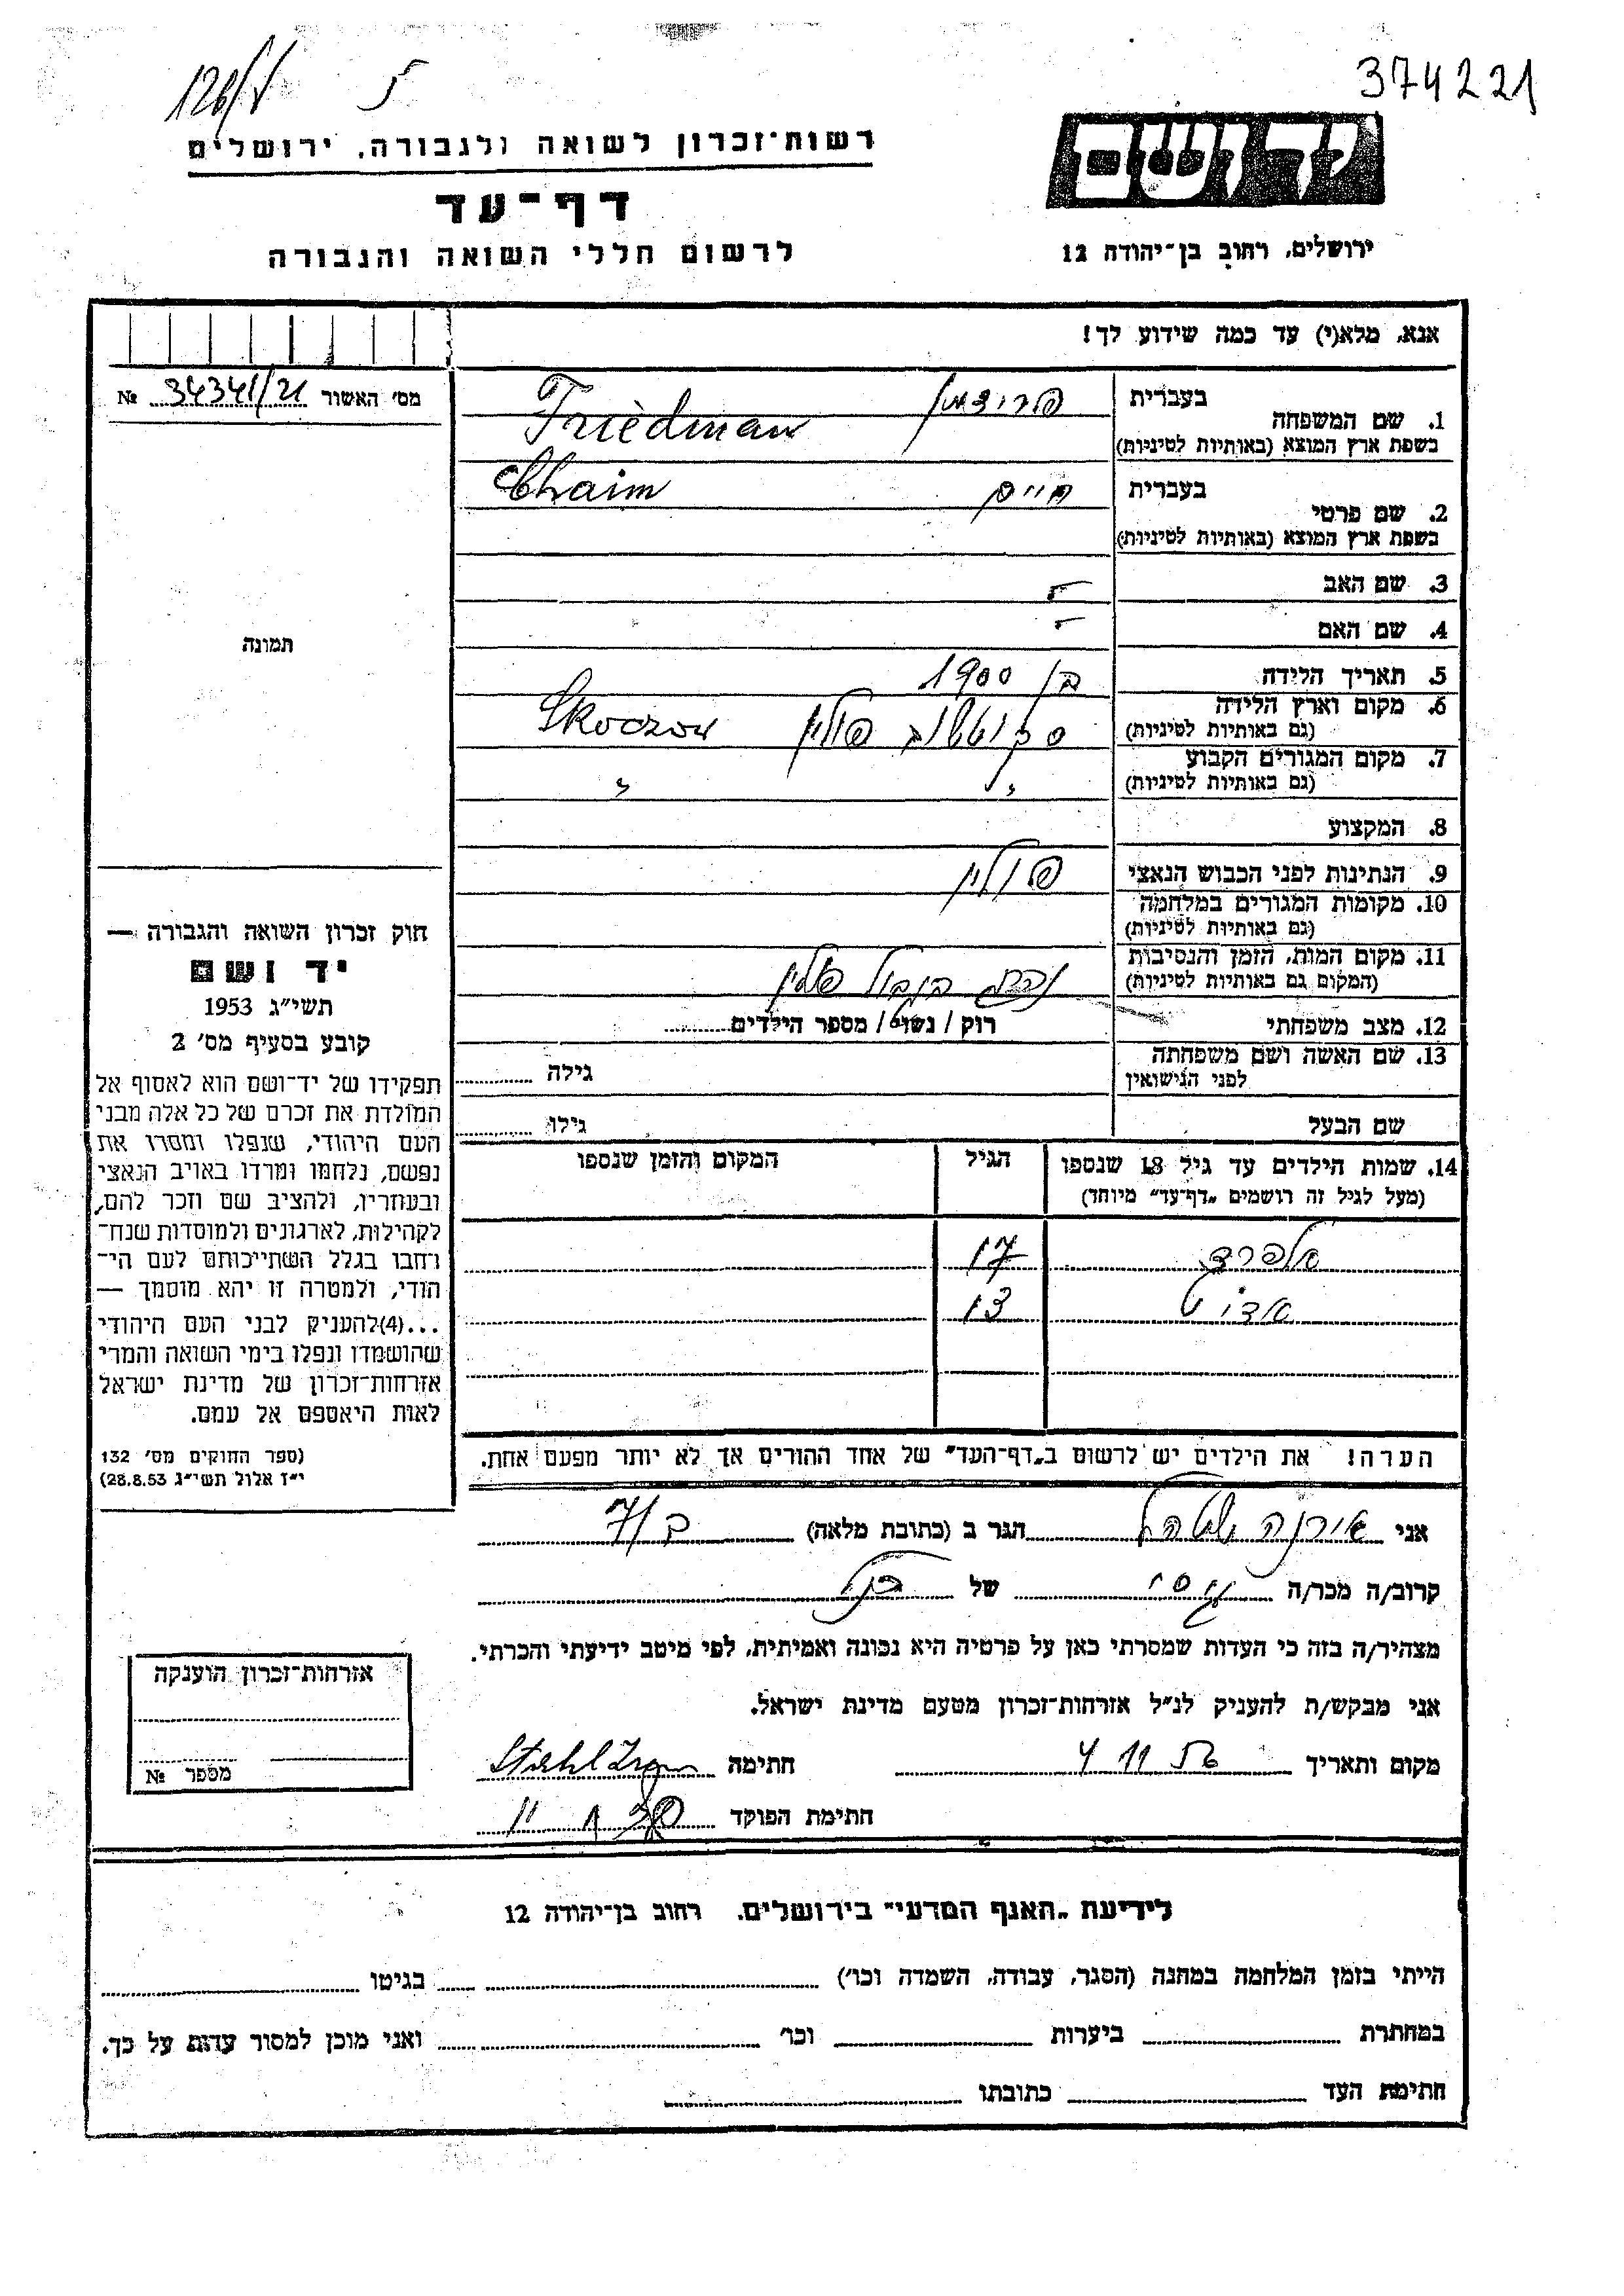 374221
126/V
יד ושם
ירושלים, רחוב בן־יהודה 12
רשות־זכרון לשואה ולגבורה, ירושלים
דף־עד
לרשום חללי השואה והגבורה
אנא, מלא(י) עד כמה שידוע לך!
מס' האשור 34341/21 №
תמונה
1. שם המשפחה בעברית פרידמן
בשפת ארץ המוצא (באותיות לטיניות) Friedman
2. שם פרטי בעברית חיים
בשפת ארץ המוצא (באותיות לטיניות) Chaim
3. שם האב
4. שם האם
5. תאריך הלידה בן 1900
6. מקום וארץ הלידה
(גם באותיות לטיניות) סקוטשוב פולין Skoczow
7. מקום המגורים הקבוע
(גם באותיות לטיניות) " "
8. המקצוע
9. הנתינות לפני הכבוש הנאצי פולין
10. מקומות המגורים במלחמה
(גם באותיות לטיניות)
11. מקום המות, הזמן והנסיבות
(המקום גם באותיות לטיניות) בגבול פולין
12. מצב משפחתי רוק / נשוי / מספר הילדים
13. שם האשה ושם משפחתה
לפני הנישואין גילה
שם הבעל גילו
14. שמות הילדים עד גיל 18 שנספו הגיל המקום והזמן שנספו
(מעל לגיל זה רושמים „דף־עד" מיוחד)
אלפרד 17
אדיט 13
הערה! את הילדים יש לרשום ב„דף־העד" של אחד ההורים אך לא יותר מפעם אחת.
חוק זכרון השואה והגבורה —
יד ושם
תשי"ג 1953
קובע בסעיף מס' 2
תפקידו של יד־ושם הוא לאסוף אל
המולדת את זכרם של כל אלה מבני
העם היהודי, שנפלו ומסרו את
נפשם, נלחמו ומרדו באויב הנאצי
ובעוזריו, ולהציב שם וזכר להם,
לקהילות, לארגונים ולמוסדות שנח־
רחבו בגלל השתייכותם לעם הי־
הודי, ולמטרה זו יהא מוסמך —
...(4)להעניק לבני העם היהודי
שהושמדו ונפלו בימי השואה והמרי
אזרחות־זכרון של מדינת ישראל
לאות היאספם אל עמם.
(ספר החוקים מס' 132
י"ז אלול תשי"ג 28.8.53)
אני אירנה שטהל הגר ב (כתובת מלאה)
קרוב/ה מכר/ה גיסי של
מצהיר/ה בזה כי העדות שמסרתי כאן על פרטיה היא נכונה ואמיתית, לפי מיטב ידיעתי והכרתי.
אני מבקש/ת להעניק לנ"ל אזרחות־זכרון מטעם מדינת ישראל.
מקום ותאריך 4 11 56 חתימה Stahl Irena
חתימת הפוקד
אזרחות־זכרון הוענקה
מספר №
לידיעת „האגף המדעי" בירושלים, רחוב בן־יהודה 12
הייתי בזמן המלחמה במחנה (הסגר, עבודה, השמדה וכו') בגיטו
במחתרת ביערות וכו' ואני מוכן למסור עדות על כך.
חתימת העד כתובתו